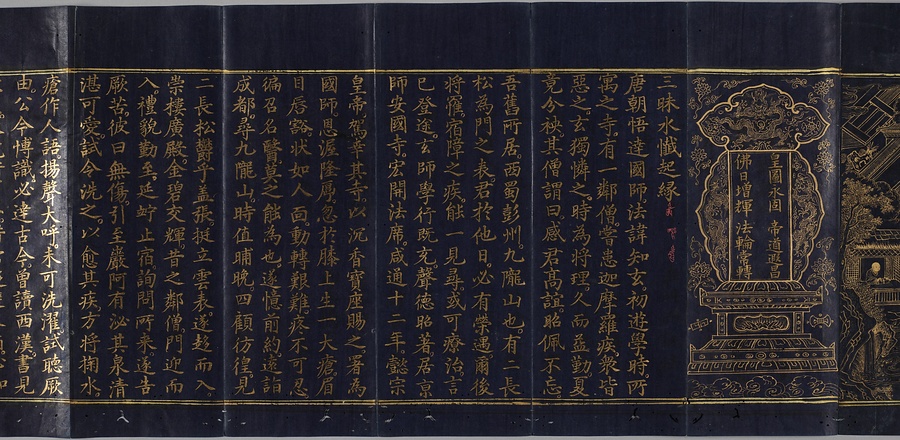 皇圖永固 帝道遐昌
佛日增輝 法輪常轉
三昧水懺起緣
唐朝悟達國師法諱知玄初遊學時所
寓之寺有一鄰僧嘗患迦摩羅疾衆皆
惡之玄獨憐之時為將理久而益勤夏
竟分袂其僧謂曰感君高誼昭佩不忘
吾舊所居西蜀彭州九隴山也有一長
松為門之表君於他日必有榮遇爾後
將罹宿障之疾能一見尋或可療治言
已登途玄師學行既充聲德昭著居京
師安國寺宏開法席咸通十二年懿宗
皇帝駕幸其寺以沉香寶座賜之署為
國師恩渥隆厚忽於膝上生一大瘡眉
目唇豁狀如人面動轉艱難疼不可忍
徧召名醫莫之能為也遂憶前約遠詣
成都尋九隴山時值晡晚四顧彷徨見
二長松鬱乎蓋張挺立雲表遂趨而入
崇樓廣殿金碧交輝昔之鄰僧門迎而
入禮貌勤至延竚止宿詢問所來遂告
厥苦彼曰無傷引至巖阿有泌其泉清
湛可愛試令洗之以愈其疾方將掬水
瘡作人語揚聲大呼未可洗濯試聽厥
由公今博識必達古今曾讀西漢書見